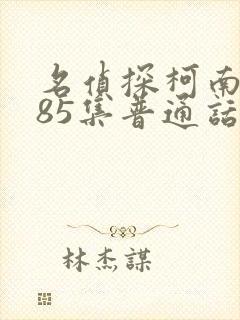 名偵探柯南
85集普通話
林杰謀